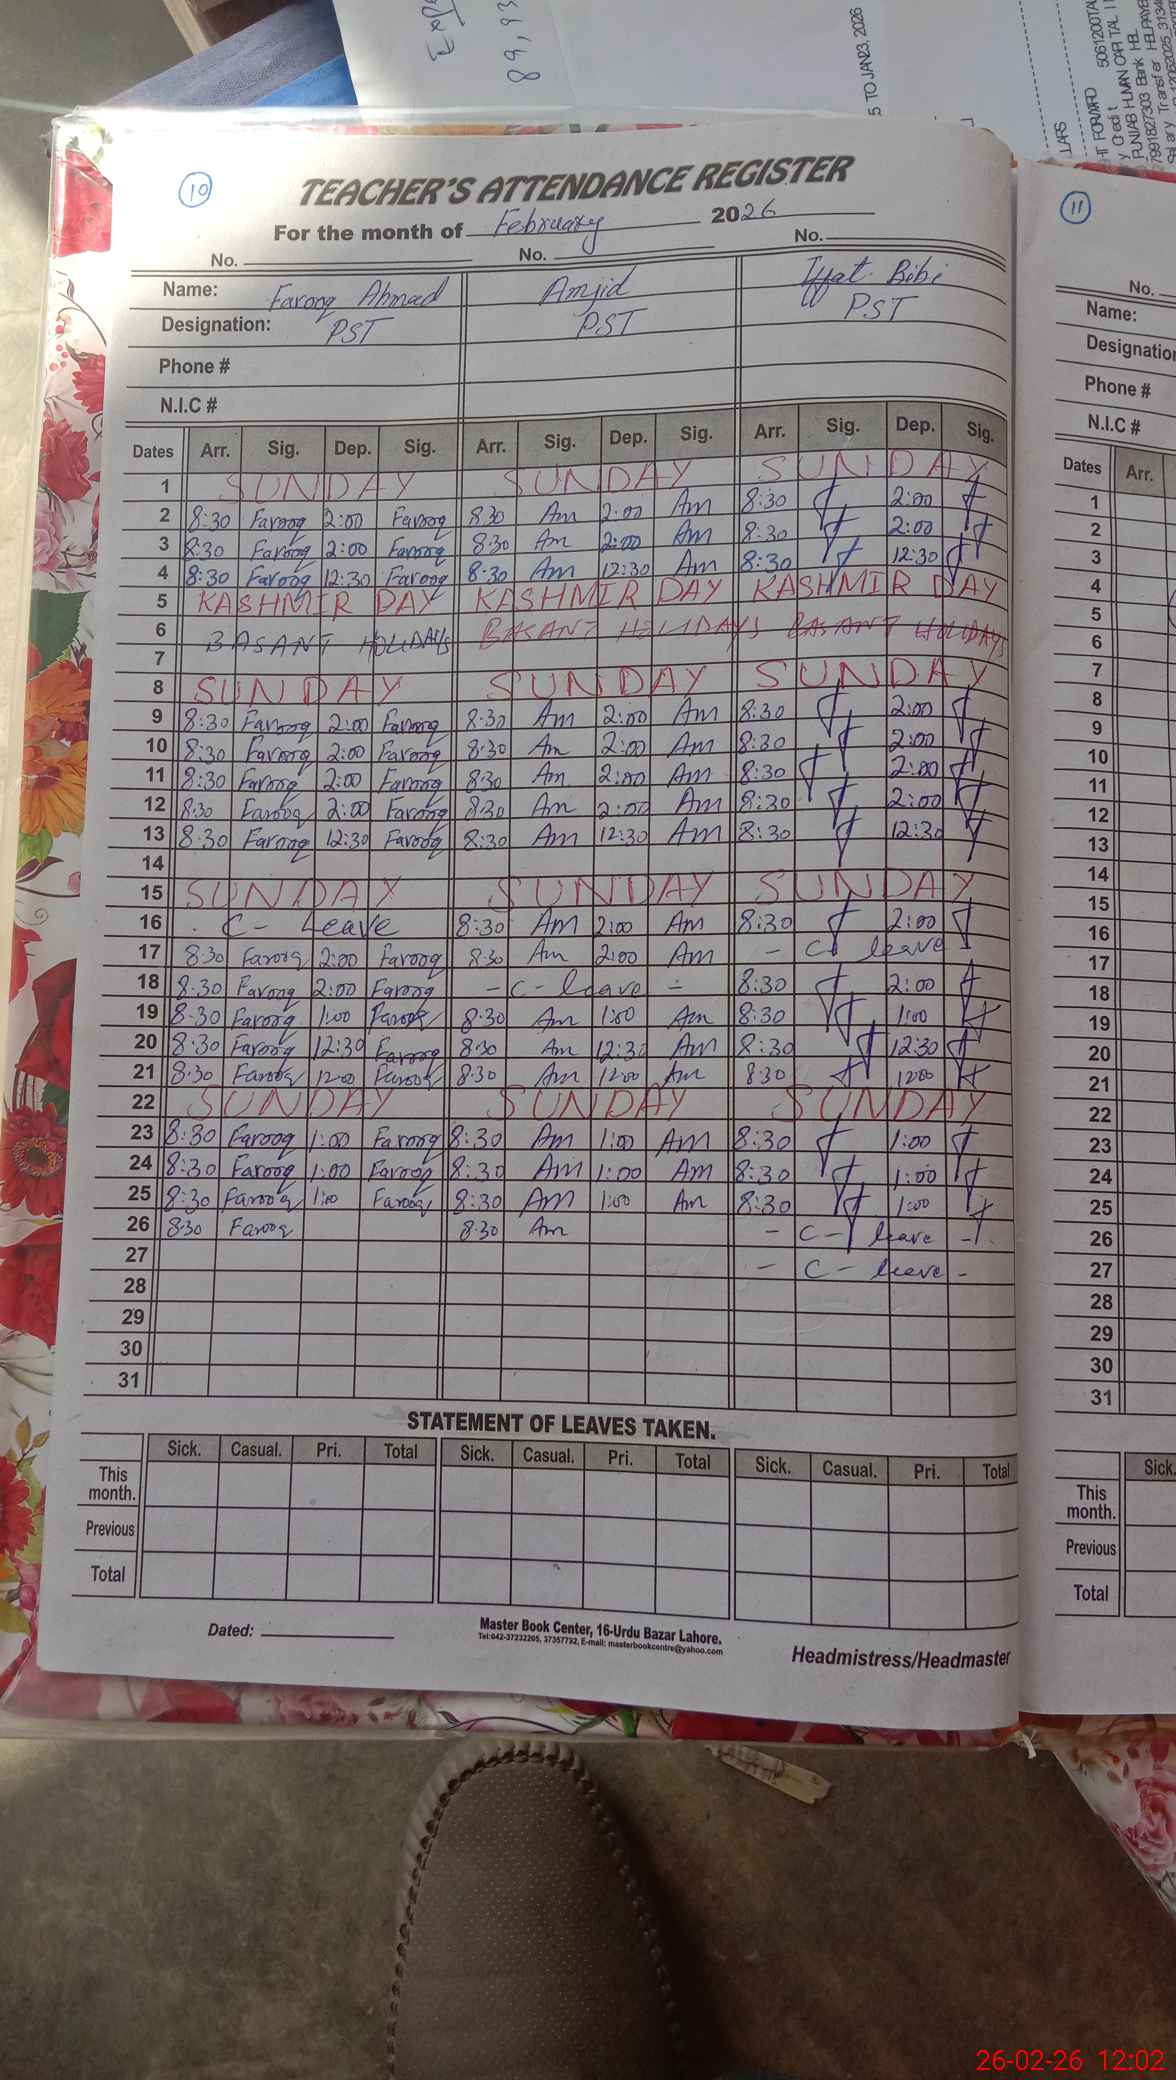 Expe
89,83
5 TO JAN23, 2026
LLARS
HT FORWARD 5061200TAL
y Credit
PUNJAB HUMAN CAPITAL I
7991827303 Bank HBL
Salary Transfer HBLPAYB
10
TEACHER'S ATTENDANCE REGISTER
For the month of February 2026
No. No. No.
Name: Farooq Ahmad Amjid Iffat Bibi
Designation: PST PST PST
Phone #
N.I.C #
Dates Arr. Sig. Dep. Sig. Arr. Sig. Dep. Sig. Arr. Sig. Dep. Sig.
1 SUNDAY SUNDAY SUNDAY
2 8:30 Farooq 2:00 Farooq 8:30 Am 2:00 Am 8:30 2:00
3 8:30 Farooq 2:00 Farooq 8:30 Am 2:00 Am 8:30 2:00
4 8:30 Farooq 12:30 Farooq 8:30 Am 12:30 Am 8:30 12:30
5 KASHMIR DAY KASHMIR DAY KASHMIR DAY
6 BASANT HOLIDAYS BASANT HOLIDAYS BASANT HOLIDAYS
7
8 SUNDAY SUNDAY SUNDAY
9 8:30 Farooq 2:00 Farooq 8:30 Am 2:00 Am 8:30 2:00
10 8:30 Farooq 2:00 Farooq 8:30 Am 2:00 Am 8:30 2:00
11 8:30 Farooq 2:00 Farooq 8:30 Am 2:00 Am 8:30 2:00
12 8:30 Farooq 2:00 Farooq 8:30 Am 2:00 Am 8:30 2:00
13 8:30 Farooq 12:30 Farooq 8:30 Am 12:30 Am 8:30 12:30
14
15 SUNDAY SUNDAY SUNDAY
16 C- Leave 8:30 Am 2:00 Am 8:30 2:00
17 8:30 Farooq 2:00 Farooq 8:30 Am 2:00 Am - C leave
18 8:30 Farooq 2:00 Farooq - C - leave - 8:30 2:00
19 8:30 Farooq 1:00 Farooq 8:30 Am 1:00 Am 8:30 1:00
20 8:30 Farooq 12:30 Farooq 8:30 Am 12:30 Am 8:30 12:30
21 8:30 Farooq 12:00 Farooq 8:30 Am 12:00 Am 8:30 12:00
22 SUNDAY SUNDAY SUNDAY
23 8:30 Farooq 1:00 Farooq 8:30 Am 1:00 Am 8:30 1:00
24 8:30 Farooq 1:00 Farooq 8:30 Am 1:00 Am 8:30 1:00
25 8:30 Farooq 1:00 Farooq 8:30 Am 1:00 Am 8:30 1:00
26 8:30 Farooq 8:30 Am - C - leave -
27 - C - leave -
28
29
30
31
STATEMENT OF LEAVES TAKEN.
Sick. Casual. Pri. Total Sick. Casual. Pri. Total Sick. Casual. Pri. Total
This month.
Previous
Total
Dated:
Master Book Center, 16-Urdu Bazar Lahore.
Tel:042-37232205, 37357732, E-mail: masterbookcentre@yahoo.com
Headmistress/Headmaster
11
No.
Name:
Designation
Phone #
N.I.C #
Dates Arr.
1
2
3
4
5
6
7
8
9
10
11
12
13
14
15
16
17
18
19
20
21
22
23
24
25
26
27
28
29
30
31
Sick.
This month.
Previous
Total
26-02-26 12:02